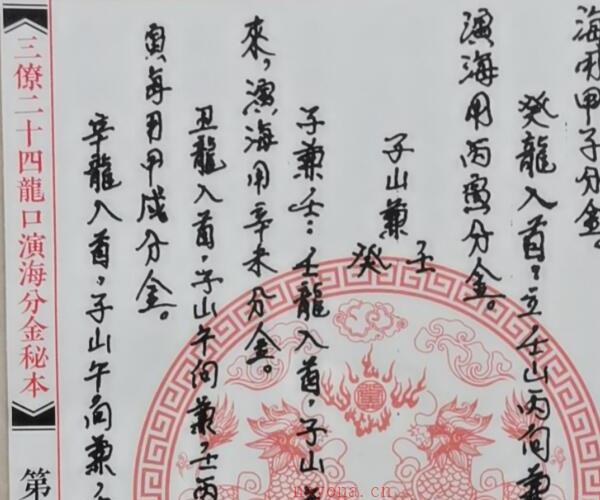 海用甲子分金。
癸龍入首：立壬山丙向兼
演海用丙寅分金。
子山兼壬癸
子兼壬：壬龍入首，子山
來，演海用辛未分金。
丑龍入首，子山午向兼壬丙
寅每用甲戌分金。
辛龍入首，子山午向兼
三僚二十四龍口演海分金秘本
第
nayona.cn